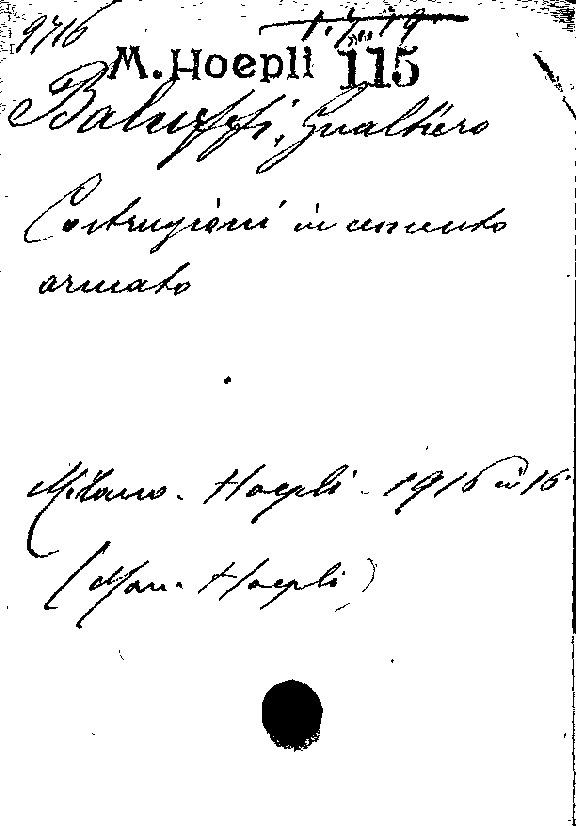 9716
M. Hoepli 115
Baluffi, Gualtiero
Costruzioni in cemento
armato
Milano. Hoepli. 1916 in 16.
(Man. Hoepli)